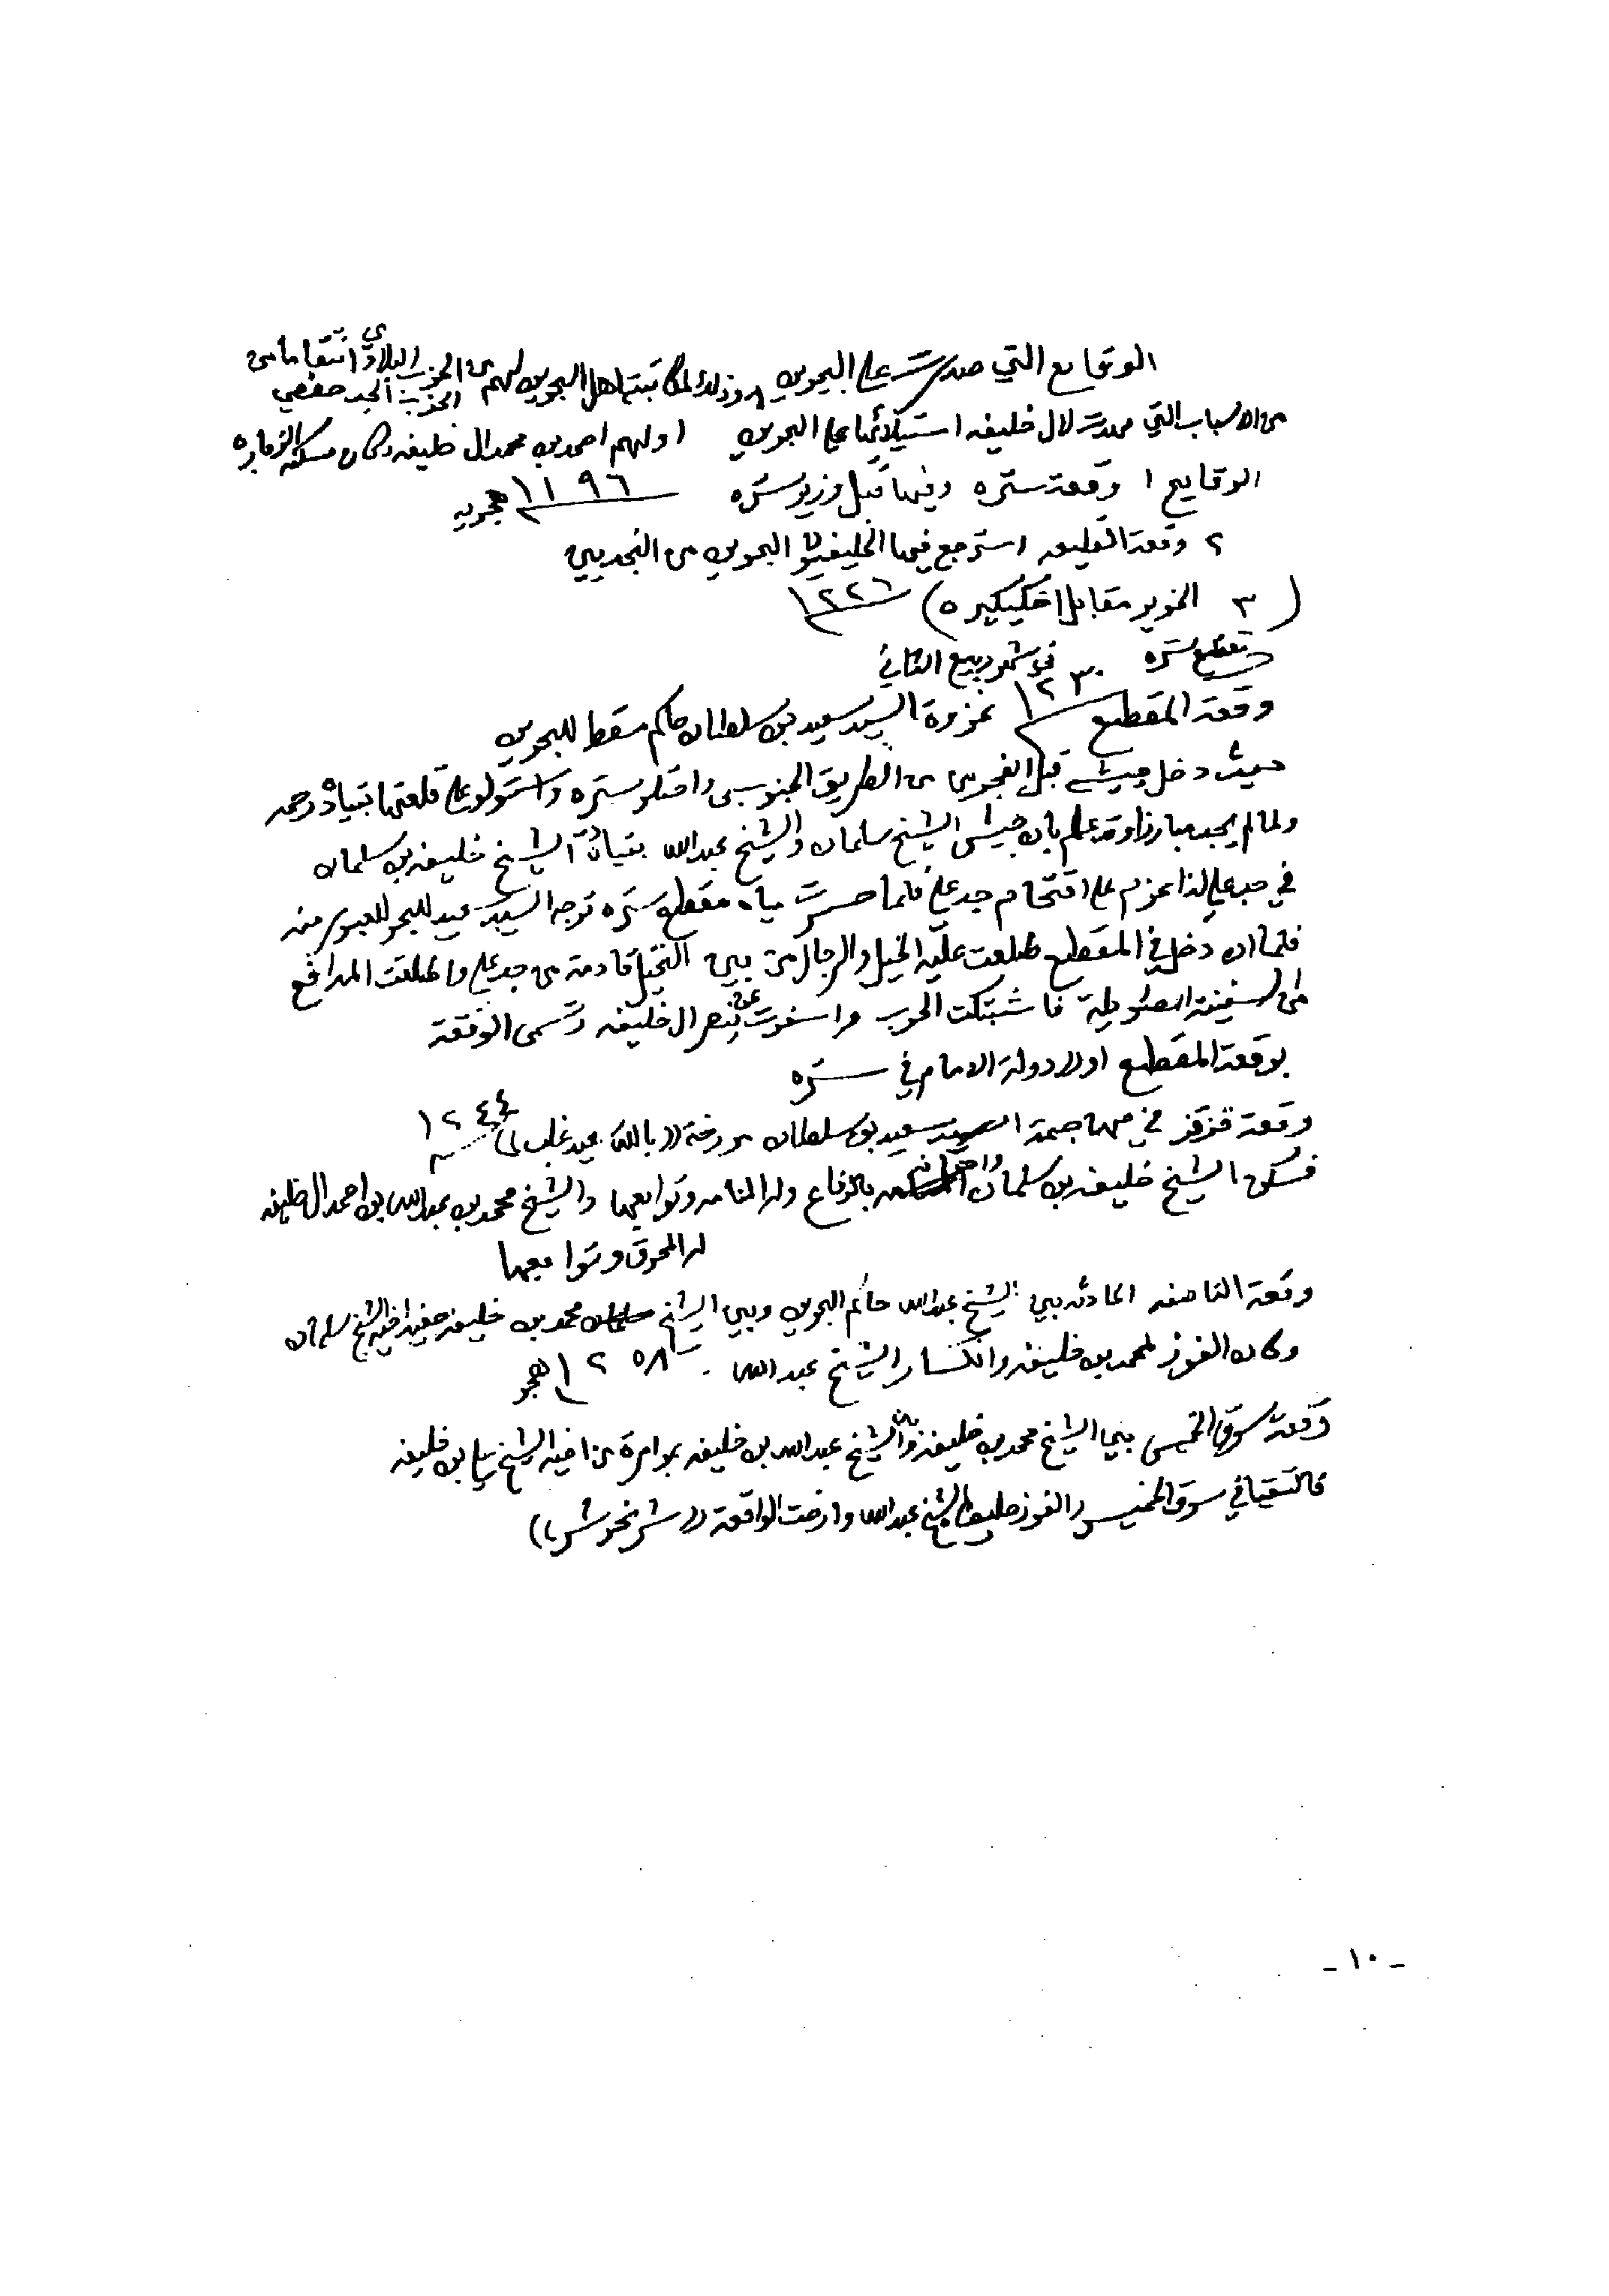 الوقايع التي صدرت على البحرين وذلك لمكاتبة اهل البحرين لهم من الحزب البلادي انتقاما من
الحزب الجد حفصي
من الاسباب التي مهدت لال خليفه استيلائها على البحرين اولهم احمد بن محمد ال خليفه وكان مسكنه الزباره
الوقايع ١ وقعة ستره وفيها قتل وزير ستره ١١٩٦ هجريه
٢ وقعة القليعه استرجع فيها الخليفيون البحرين من النجديين
(٣ الخوير مقابل اخكيكيره) ١٢٢٦
مقطع ستره في شهر ربيع الثاني
وقعة المقطع ١٢٣٠ غزوة السيد سعيد بن سلطان حاكم مسقط للبحرين
حيث دخل جيشه قبل الفجر من الطريق الجنوبي واحتلو ستره واستولو على قلعتها بقيادة
ولما لم يجد مبارزا وقد علم بان جيش الشيخ سلمان والشيخ عبدالله بقيادة الشيخ خليفه بن سلمان
في جدعلي لذا عزم على اقتحام جدعلي فلما حسرت مياه مقطع ستره توجه السيد سعيد للبحر للعبور منه
فلما ان دخل في المقطع طلعت عليه الخيل والرجال من بين النخيل قادمة من جدعلي واطلقت المدافع
من السفينة فاشتبكت الحرب واسفرت عن نصر ال خليفه وتسمى الوقعة
بوقعة المقطع اولاد دولة الامام في ستره
وقعة قزقز في مهاجمة السيد سعيد بن سلطان مورخة ((بالله عيد غلب)) ١٢٤٤
فسكن الشيخ خليفه بن سلمان واخوانه بالرفاع وله المنامه وتوابعها والشيخ محمد بن عبدالله بن احمد ال خليفه
له المحرق وتوابعها
وقعة الناصفه الحادثه بين الشيخ عبدالله حاكم البحرين وبين الشيخ محمد بن خليفه حفيد اخيه الشيخ سلمان
وكان الفوز لمحمد بن خليفه وانكسار الشيخ عبدالله ١٢٥٨ هجر
وقعة سوق الخميس بين الشيخ محمد بن خليفه وبين الشيخ عبدالله بن خليفه بموامرة من اخيه الشيخ علي بن خليفه
فالتقيا في سوق الخميس والفوز حليف الشيخ عبدالله وارخت الواقعة ((شر نحر شر))
- ١٠ -